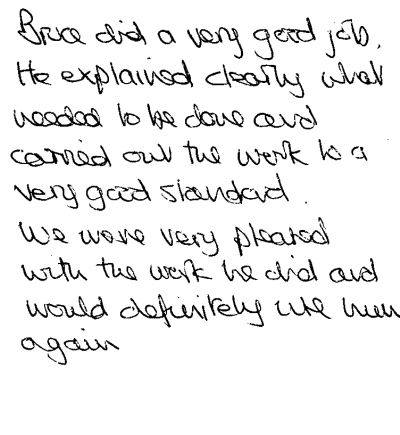 Bruce did a very good job.
He explained clearly what
needed to be done and
carried out the work to a
very good standard.
We were very pleased
with the work he did and
would definitely use him
again